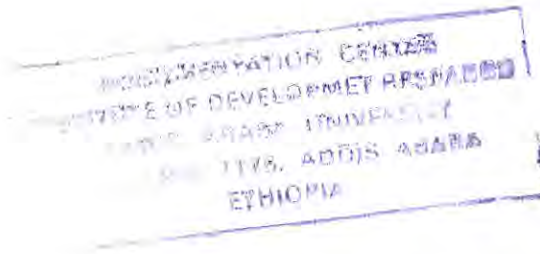 DOCUMENTATION CENTER
INSTITUTE OF DEVELOPMET RESEARCH
ADDIS ABABA UNIVERSITY
1176, ADDIS ABABA
ETHIOPIA